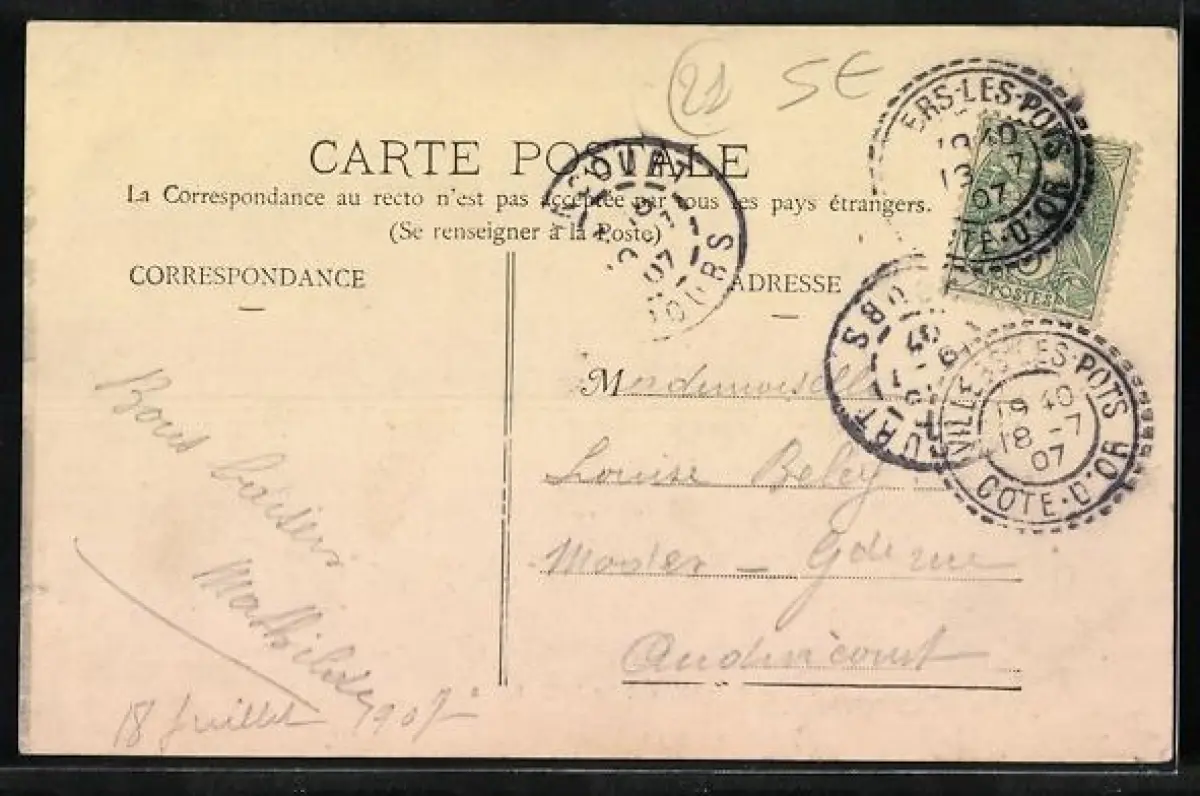 21 5E
CARTE POSTALE
La Correspondance au recto n'est pas acceptée par tous les pays étrangers.
(Se renseigner à la Poste)
CORRESPONDANCE
ADRESSE
ERS-LES-POTS
19 40
7
07
TE-D'OR
POSTES
07
DOUBS
DOUBS
VILLERS-LES-POTS
19 40
18 -7
07
COTE-D'OR
Mademoiselle
Louise Beley
Gde rue
Audincourt
Bons baisers
Mathilde
18 Juillet 1907